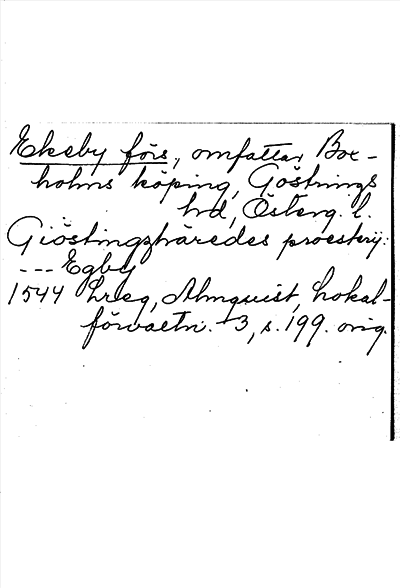 Ekeby förs, omfattar Box-
holms köping, Göstrings
hd, Österg. l.
Giöstingzhäredes proestery:
--- Egby
1544 Lreg, Almquist, Lokal-
förvaltn. 3, s. 199. orig.